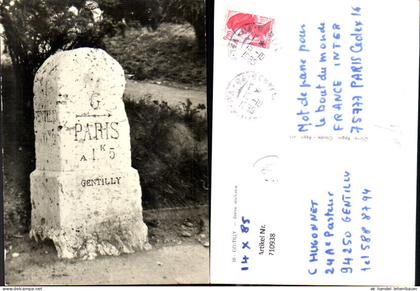 G
PARIS
A 1 K 5
GENTILLY
Mot de passe pour
le bout du monde
FRANCE INTER
75777 PARIS Cedex 16
GENTILLY
14 x 85
Artikel Nr.
710938
C HUGONNET
24 Ae Pasteur
94250 GENTILLY
tel 588 87 94